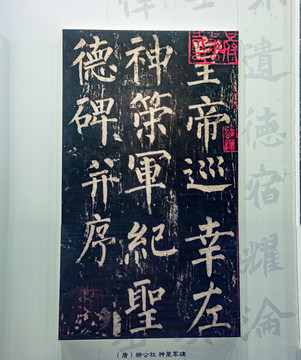 皇帝巡幸左
神策軍紀聖
德碑并序
遺德宿耀論
（唐）柳公权 神策军碑